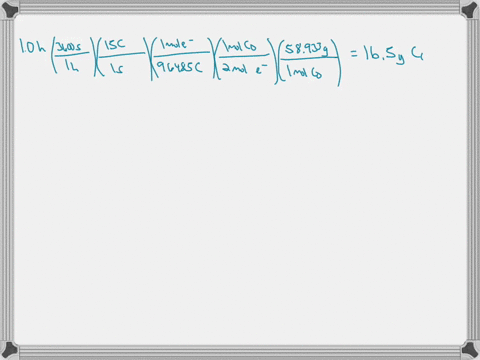 1.0h (3600s/1h)(15C/1s)(1mol e⁻/96485C)(1mol Co/2mol e⁻)(58.933g/1mol Co) = 16.5g Co